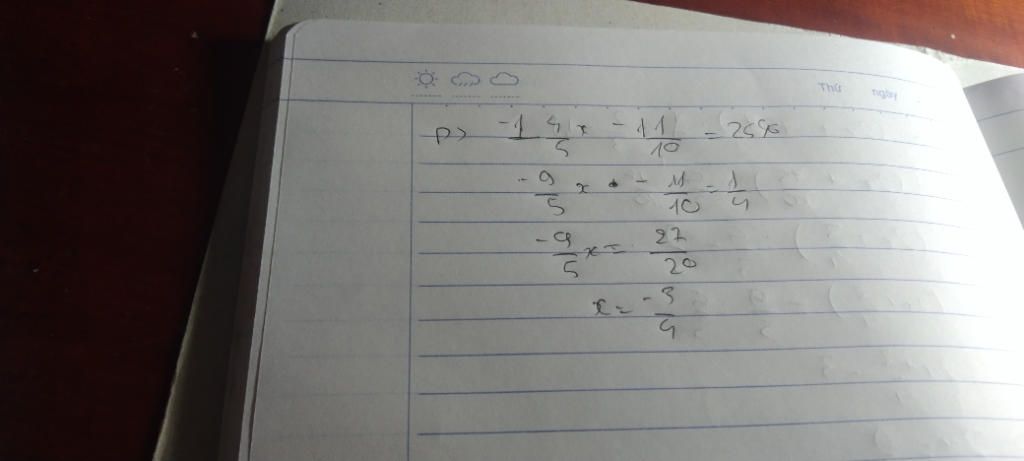 Thứ ngày
p> -1 4/5 x - 11/10 = 25%
-9/5 x - 11/10 = 1/4
-9/5 x = 27/20
x = -3/4